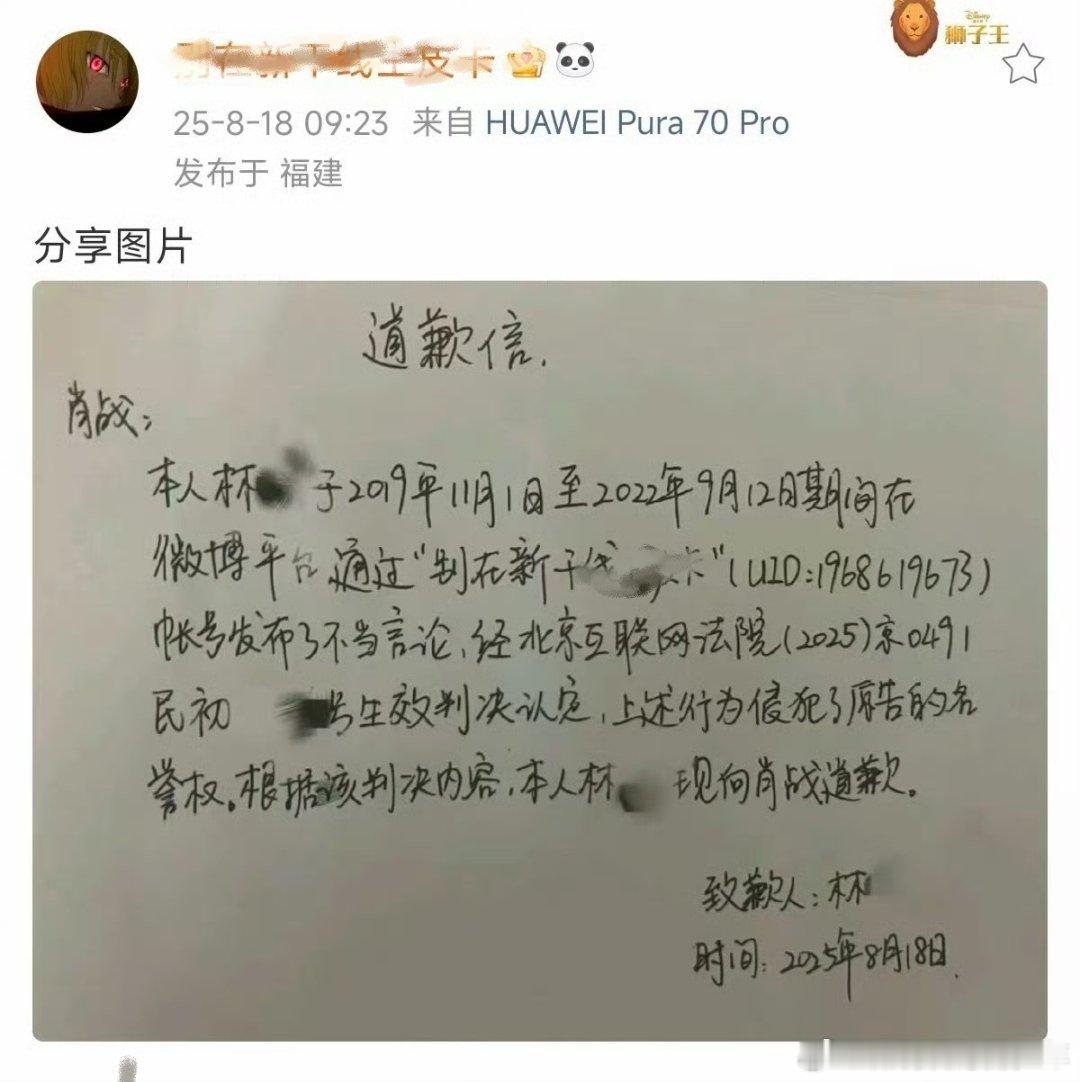 25-8-18 09:23 来自 HUAWEI Pura 70 Pro
发布于 福建
Disney
狮子王
分享图片
道歉信.
肖战:
本人林 于2019年11月1日至2022年9月12日期间在
微博平台通过"别在新干线 卡"(UID:1968619673)
帐号发布了不当言论,经北京互联网法院(2025)京0491
民初 号生效判决认定,上述行为侵犯了原告的名
誉权。根据该判决内容,本人林 现向肖战道歉。
致歉人:林
时间:2025年8月18日.